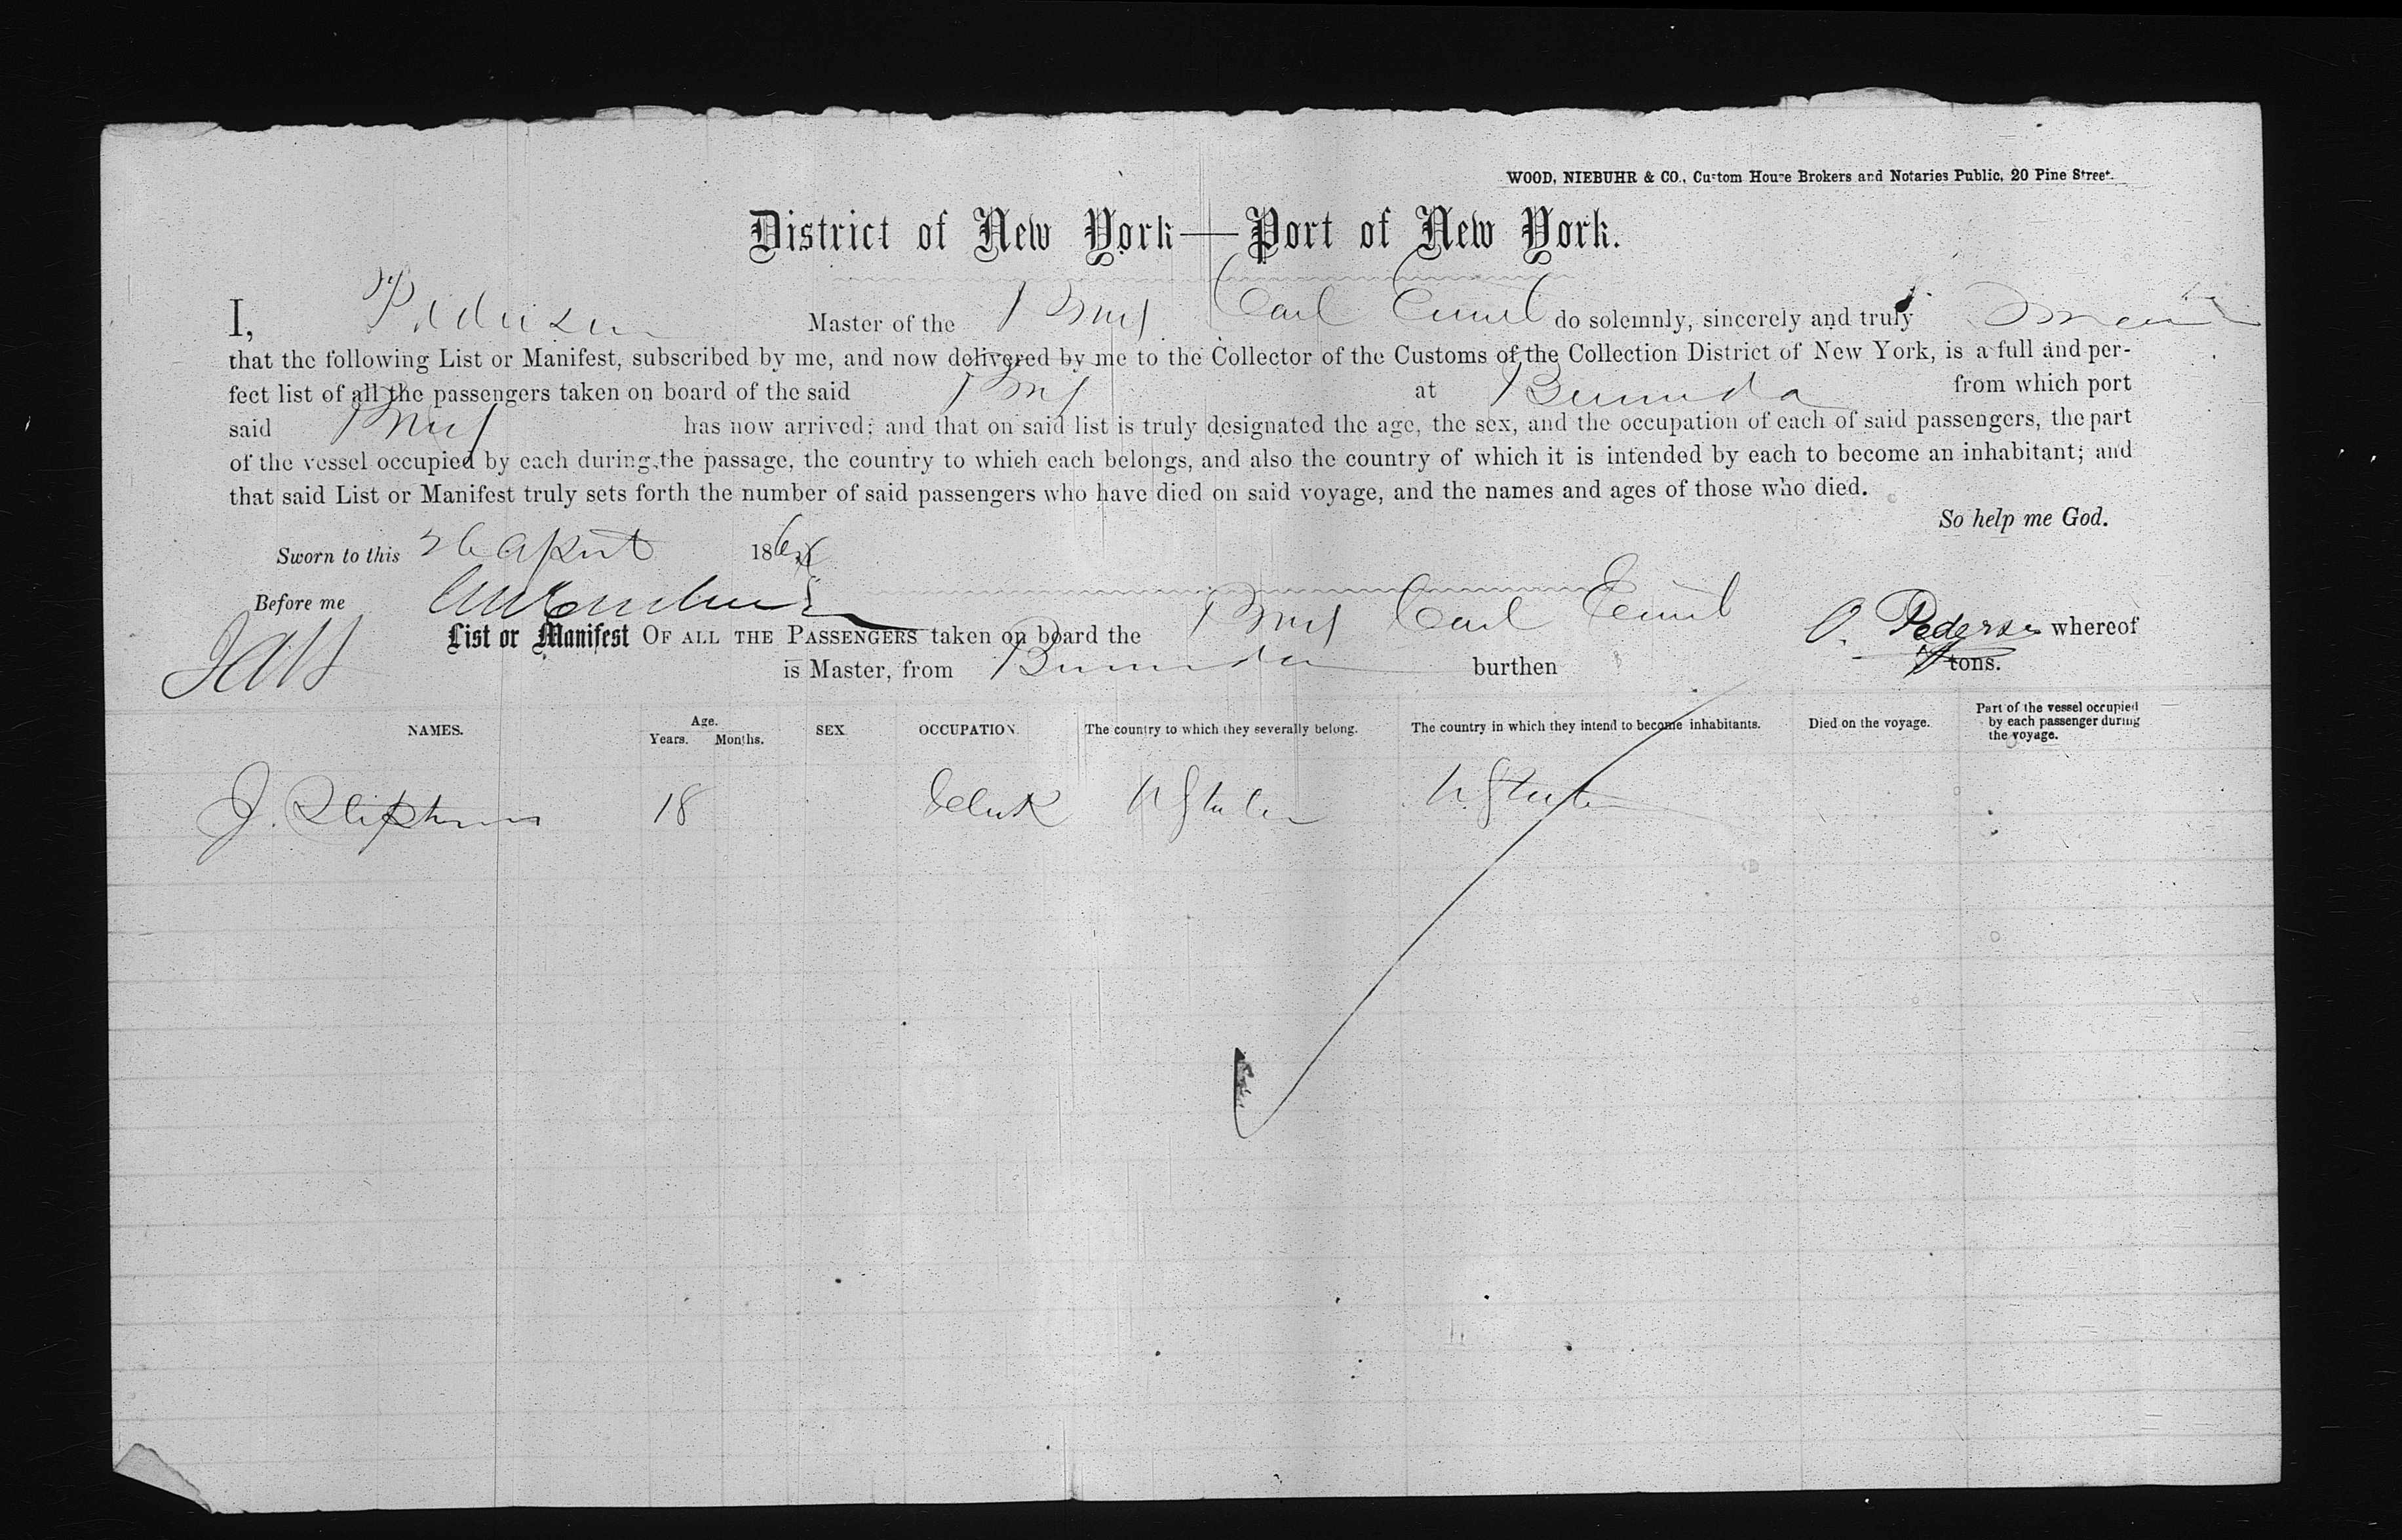 WOOD, NIEBUHR & CO., Custom House Brokers and Notaries Public, 20 Pine Street.
District of New York—Port of New York.
I, Pedersen Master of the Brig Carl Emil do solemnly, sincerely and truly swear
that the following List or Manifest, subscribed by me, and now delivered by me to the Collector of the Customs of the Collection District of New York, is a full and per-
fect list of all the passengers taken on board of the said Brig at Bermuda from which port
said Brig has now arrived; and that on said list is truly designated the age, the sex, and the occupation of each of said passengers, the part
of the vessel occupied by each during the passage, the country to which each belongs, and also the country of which it is intended by each to become an inhabitant; and
that said List or Manifest truly sets forth the number of said passengers who have died on said voyage, and the names and ages of those who died.
So help me God.
Sworn to this 26 April 186
Before me
List or Manifest OF ALL THE PASSENGERS taken on board the Brig Carl Emil O. Pedersen whereof
is Master, from Bermuda burthen tons.
NAMES. Age. Years. Months. SEX. OCCUPATION. The country to which they severally belong. The country in which they intend to become inhabitants. Died on the voyage. Part of the vessel occupied by each passenger during the voyage.
J. Stephens 18 Clerk U States U States